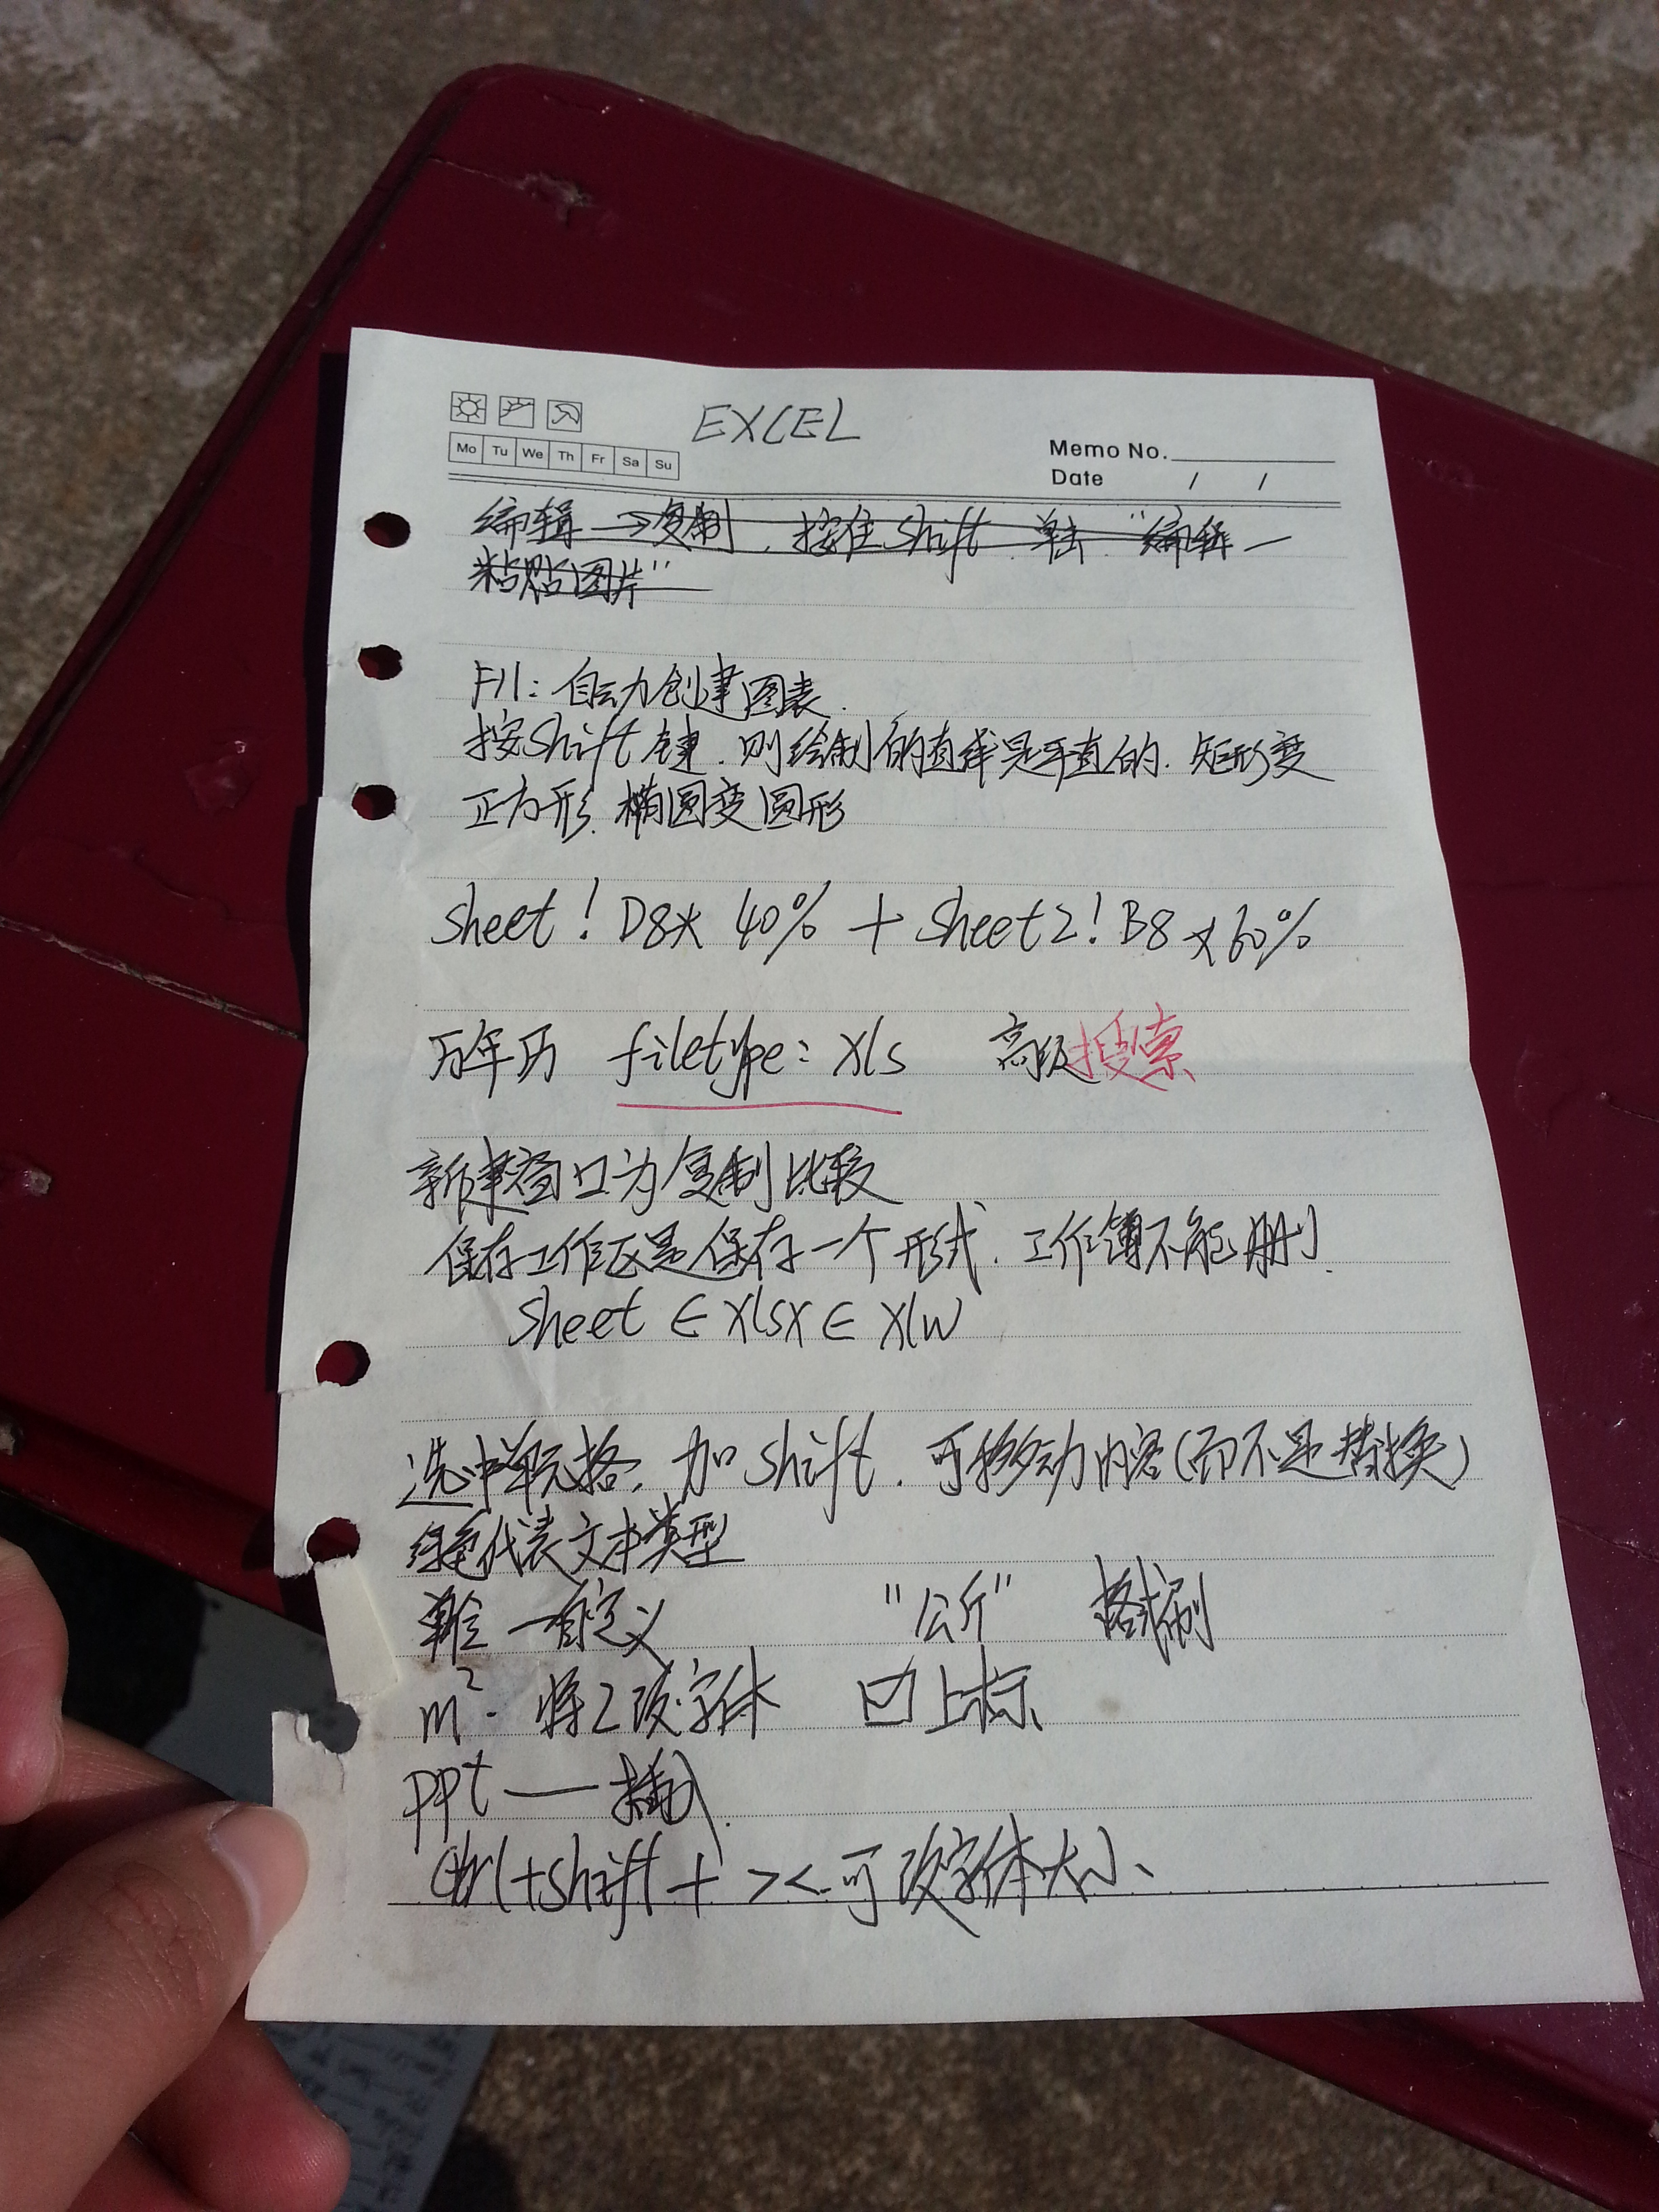 EXCEL
Mo Tu We Th Fr Sa Su
Memo No.
Date / /
编辑→复制，按住Shift 单击"编辑—
粘贴图片"
F11：自动创建图表.
按Shift键，则绘制的直线是平直的，矩形变
正方形，椭圆变圆形
Sheet！D8* 40% + Sheet2！B8 *60%
万年历 filetype：xls 高级搜索
新建窗口为复制比较
保存工作区是保存一个形式，工作簿不能删.
Sheet ∈ xlsx ∈ xlw
选中单元格，加Shift，可移动内容(而不是替换)
绿色代表文本类型
单位—自定义 "公斤" 格式刷
m². 将2改字体 ☑上标
PPt —— 插入.
Ctrl+Shift + >< 可改字体大小